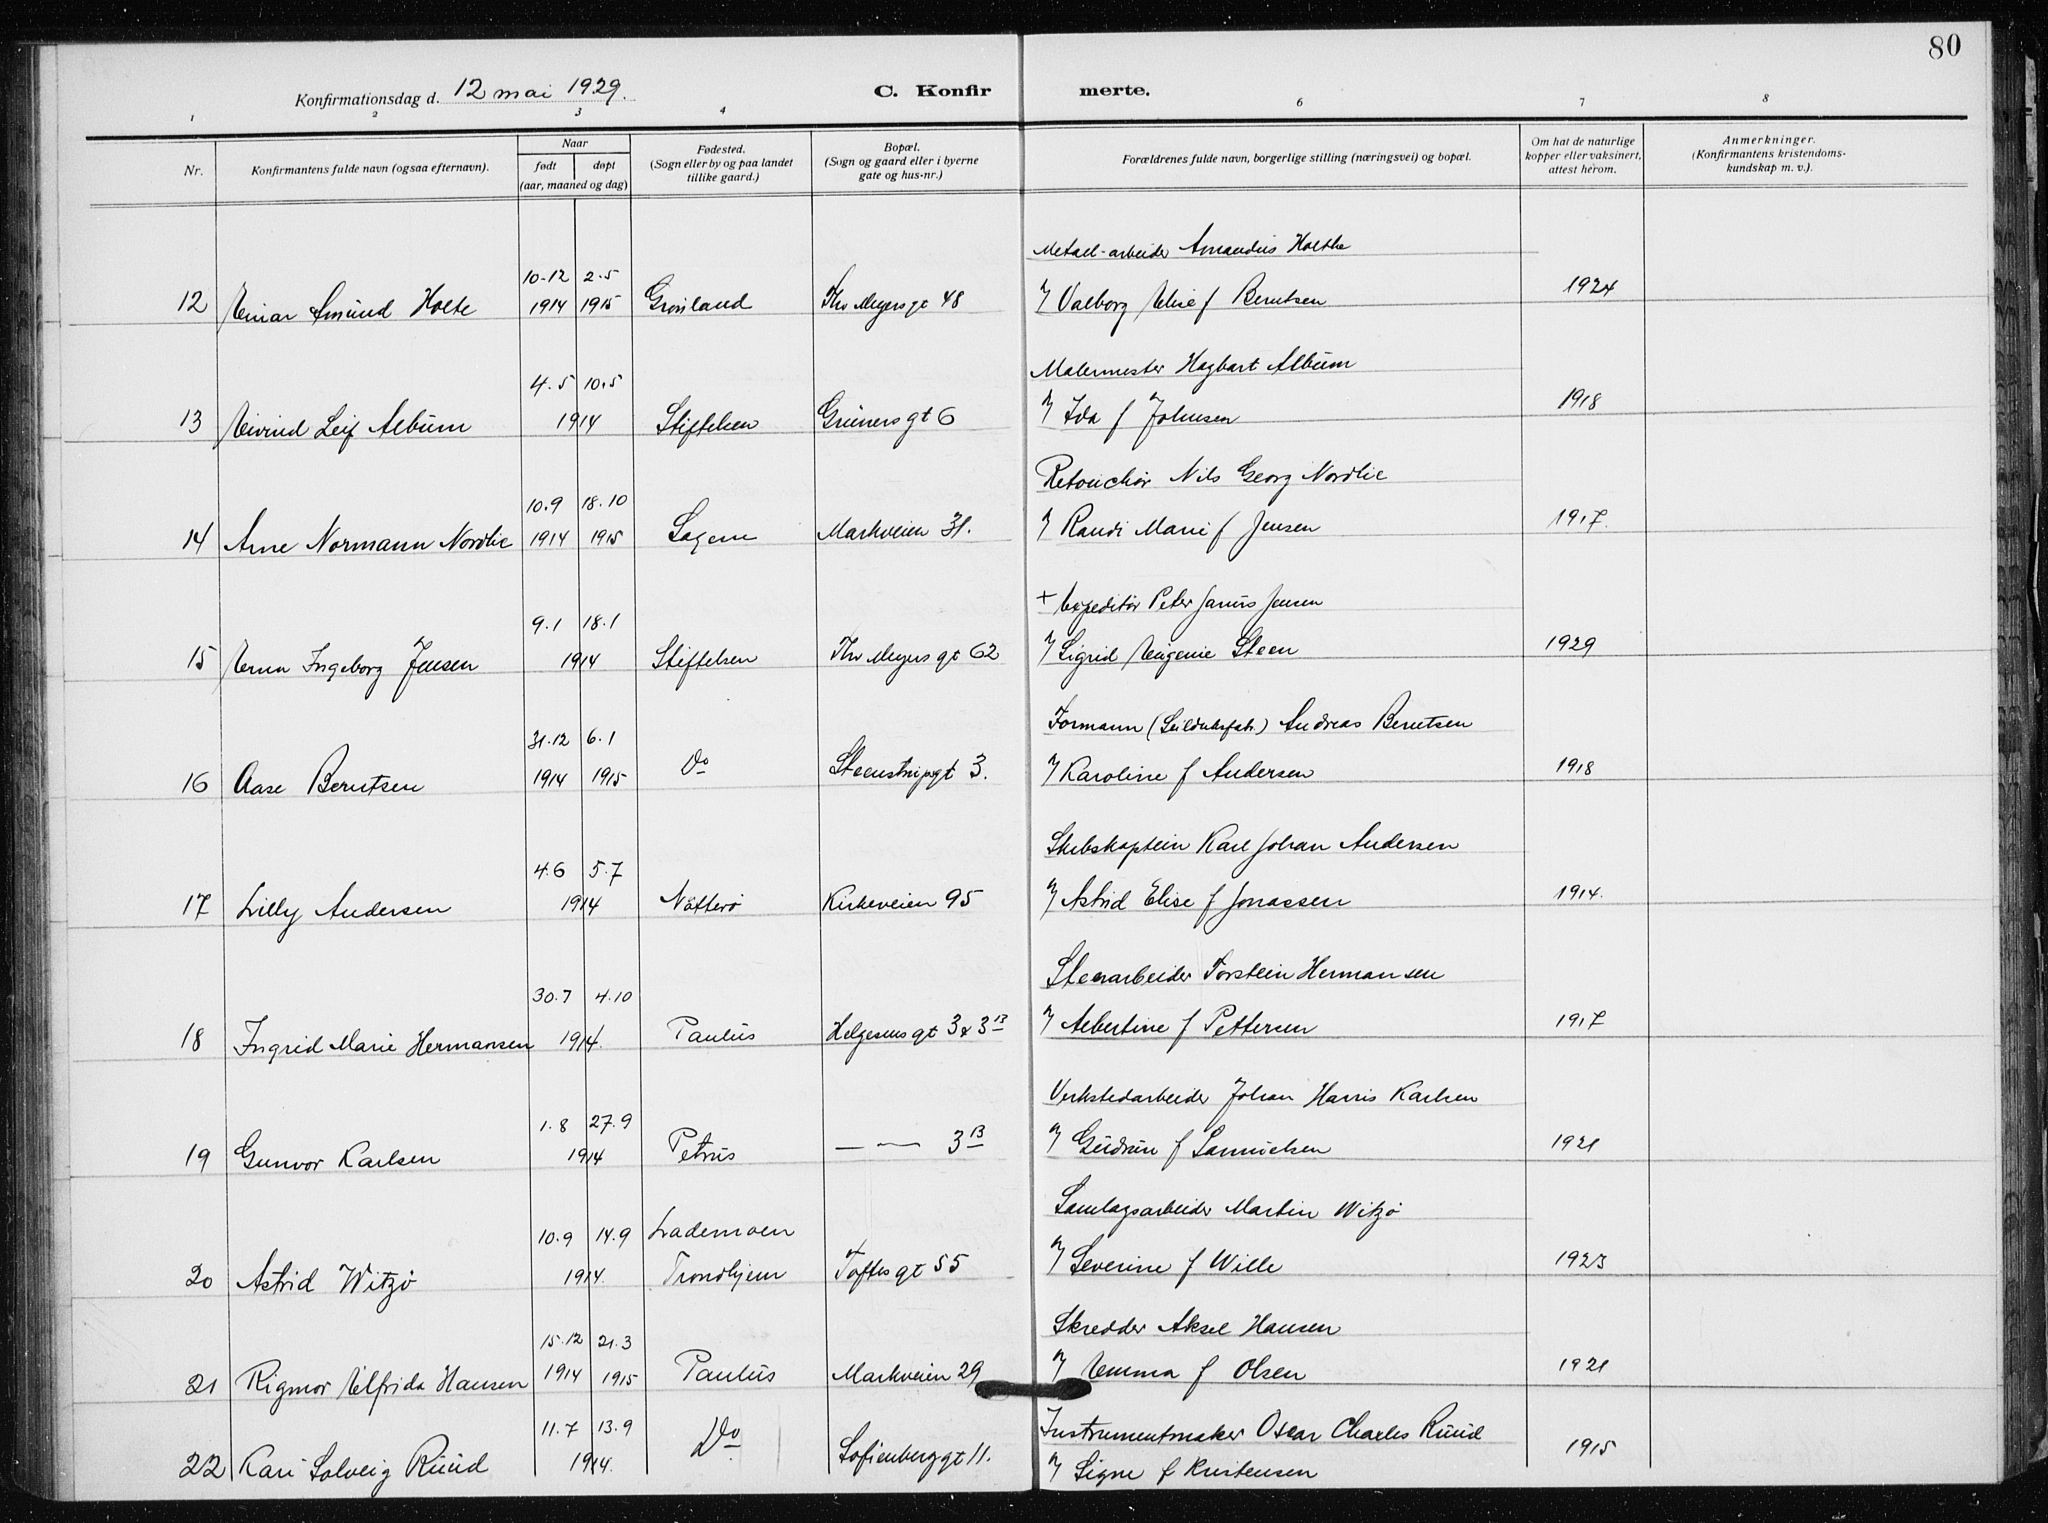 80
Konfirmationsdag d. 12 mai 1929.
C. Konfir merte.
1 2 3 4 6 7 8
Nr.
Konfirmantens fulde navn (ogsaa efternavn).
Naar
født døpt
(aar, maaned og dag)
Fødested.
(Sogn eller by og paa landet
tillike gaard.)
Bopæl.
(Sogn og gaard eller i byerne
gate og hus-nr.)
Forældrenes fulde navn, borgerlige stilling (næringsvei) og bopæl.
Om hat de naturlige
kopper eller vaksinert,
attest herom.
Anmerkninger.
(Konfirmantens kristendoms-
kundskap m. v.).
Metael-arbeider Amandus Holthe
10-12 2.5
12 Einar Amund Holte 1914 1915 Grønland Thv Meyers gt 48 Valborg Elise f Berntsen 1924
Malermester Hagbart Album
4.5 10.5
13 Eivind Leif Album 1914 Stiftelsen Grüners gt 6 Ida f Johnsen 1918
Retouchør Nils Georg Nordlie
10.9 18.10
14 Arne Normann Nordlie 1914 1915 Sagene Markveien 31. Randi Marie f Jensen 1917.
+ Expeditør Peter Janus Jensen
9.1 18.1
15 Erna Ingeborg Jensen 1914 Stiftelsen Thv Meyers gt 62 Sigrid Eugenie Steen 1929
Formann (Seilduksfab.) Andreas Berntsen
31.12 6.1
16 Aase Berntsen 1914 1915 Do Steenstrupsgt 3. Karoline f Andersen 1918
Skibskaptein Karl Johan Andersen
4.6 5.7
17 Lilly Andersen 1914 Nøtterø Kirkeveien 95 Astrid Elise f Jonassen 1914.
Stenarbeider Torstein Hermansen
30.7 4.10
18 Ingrid Marie Hermansen 1914. Paulus Helgesens gt 3 x 3 B Albertine f Pettersen 1917
Verkstedarbeider Johan Harris Karlsen
1.8 27.9
19 Gunvor Karlsen 1914 Petrus — — 3 B Gudrun f Samuelsen 1921
Samlagsarbeider Martin Witzø
10.9 14.9 Lademoen
20 Astrid Witzø 1914. Trondhjem Toftes gt 55 Severine f Wille 1923
Skredder Aksel Hansen
15.12 21.3
21 Rigmor Elfrida Hansen 1914 1915 Paulus Markveien 29 Emma f Olsen 1921
Instrumentmaker Oscar Charles Ruud
11.7 13.9
22 Kari Solveig Ruud 1914. Do Sofienberggt 11. Signe f Kristensen 1915